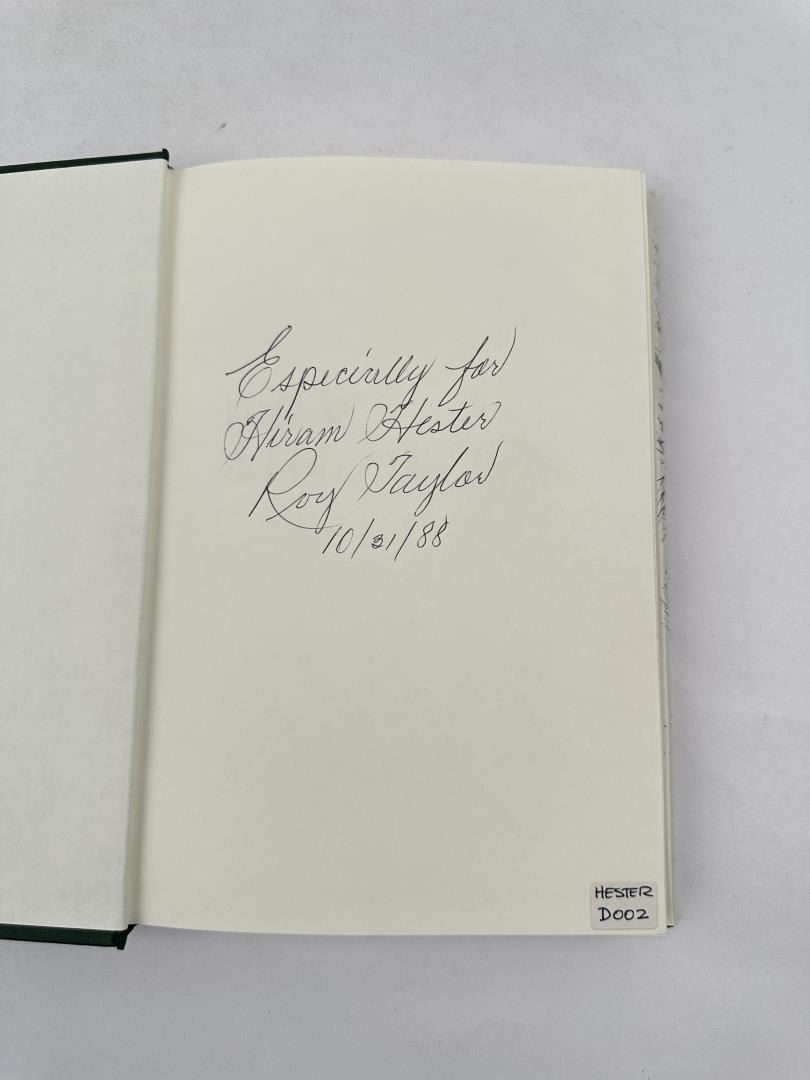 Especially for
Hiram Hester
Roy Taylor
10/31/88
HESTER
D002